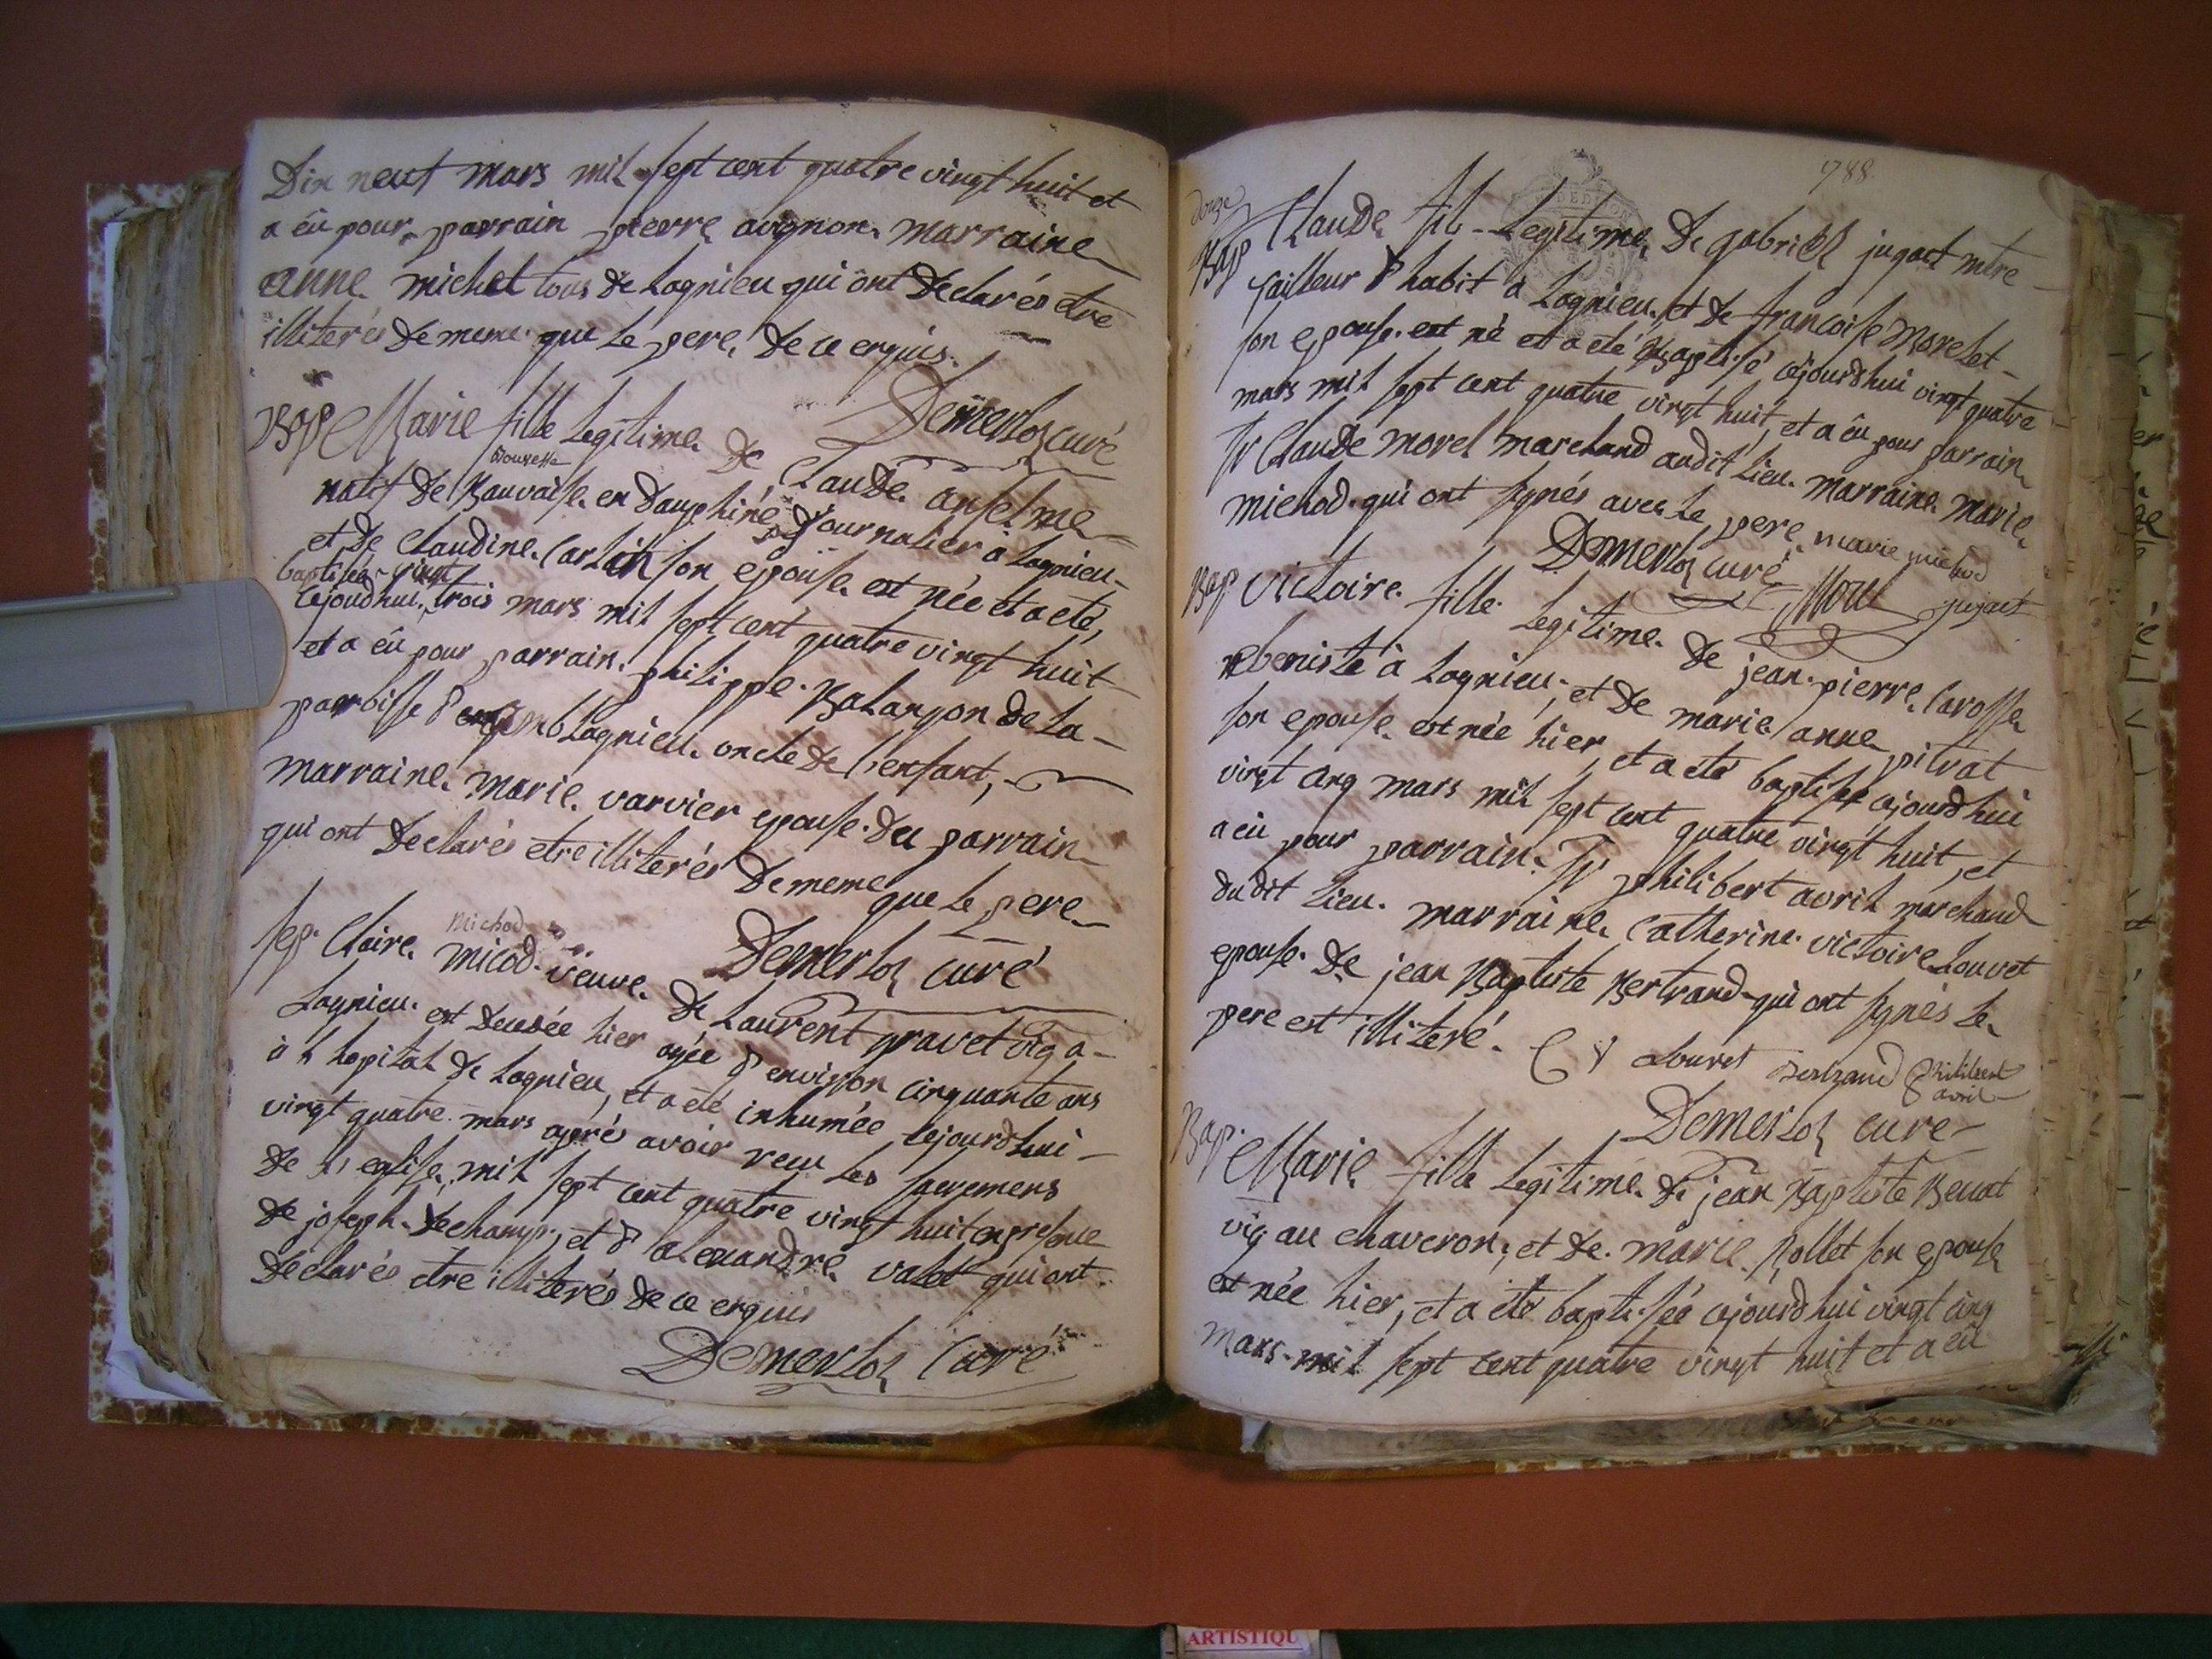 Dix neuf mars mil sept cent quatre vingt huit et
a eü pour parrain pierre avignon. marraine
anne michel tous de Lagnieu qui ont declarés etre
illiterés de meme que le pere de ce enquis.
Demerloz curé
Bap Marie fille Legitime de Claude anselme
natif de en dauphiné journalier à Lagnieu
et de Claudine Carlin son epouse est née et a eté
baptisée vingt
cejourdhui trois mars mil sept cent quatre vingt huit
et a eü pour parrain philippe Balanjon de la
parroisse oncle de l'enfant,
marraine marie varvier epouse du parrain
qui ont declarés etre illiterés de meme que le pere
Demerloz curé
Sep. Claire micod veuve de Laurent gravet vig a
Michod
Lagnieu est decedée hier agée d'environ cinquante ans
à l'hopital de Lagnieu, et a eté inhumée cejourdhui
vingt quatre mars aprés avoir reçu les sacremens
de l'eglise, mil sept cent quatre vingt huit en presence
de joseph dechamp, et d'alexandre valot qui ont
declarés etre illiterés de ce enquis
Demerloz Curé
788
douze
Bap Claude fils Legitime de gabriel jugact mtre
tailleur d'habit a Lagnieu, et de francoise Morelet
son epouse est né et a eté Baptisé cejourdhui vingt quatre
mars mil sept cent quatre vingt huit, et a eü pour parrain
Sr Claude morel marchand audit lieu. marraine marie
michod qui ont signés avec le pere marie michod
Demerloz curé Morel jugact
Bap. victoire fille Legitime de jean pierre Carosse
ebeniste à Lagnieu, et de marie anne pitrat
son epouse est née hier, et a eté baptisée cejourdhui
vingt cinq mars mil sept cent quatre vingt huit, et
a eü pour parrain Sr philibert avril marchand
du dit lieu. marraine Catherine victoire Louvet
epouse de jean Baptiste Bertrand qui ont signés le
pere est illiteré. C V Louvet Bertrand Philibert
avril
Demerloz curé
Bap. Marie fille Legitime de jean Baptiste Benat
vig au chaveron, et de marie Rollet son epouse
est née hier, et a eté baptisée cejourdhui vingt cinq
mars mil sept cent quatre vingt huit et a eü
ARTISTIQU